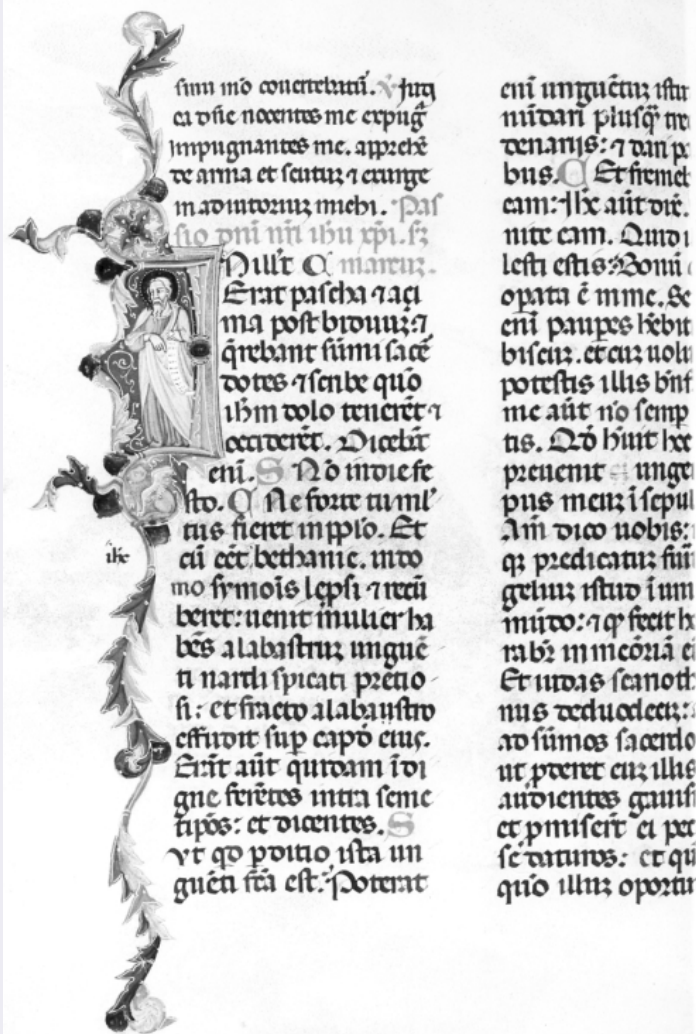 sum meo convertebatur. V Iudi
ca dñe nocentes me expugñ
impugnantes me. apprehē
de arma et scutuz ⁊ exurge
in adiutoriuz michi. Pas
sio dnī nrī ihū xp̄i. sz
N ill't C marcuz.
Erat pascha ⁊ açi
ma post biduuz: ⁊
q̄rebant sūmi sacē
dotes ⁊ scribe quō
ihm dolo tenerēt ⁊
occiderēt. Dicebāt
eni. S Nō in die fe
sto. C Ne forte tuml'
tus fieret in pplo. Et
cū eēt bethanie. in do
mo symoīs lepsi ⁊ recū
beret: uenit mulier ha
bēs alabastruz unguē
ti nardi spicati pretio
si: et fracto alabaustro
effudit sup capd eius.
Erāt aūt quidam īdi
gne ferētes intra seme
tipōs: et dicentes. S
Vt qd pditio ista un
guēti fca est. Poterat
ihc
enī unguētuz istu
nūdari plusq̄ tre
denarijs: ⁊ dari p
bus. C Et fremeb
eam: Ihc aūt dix.
nite eam. Quid i
lesti estis: Bonū
opata ē in me. Se
eni paupes hebit
biscuz. et cuz uolu
potestis illis bnf
me aūt nō semp
tis. Qd h'uit hec
preuenit unge
pus meuz ī sepul
Am̄ dico uobis:
qz predicatuz fūi
geliuz istud ī uni
mūdo: ⁊ qp fecit h
rabr in meōriā ei
Et iudas scarioth
nus de duodecīz:
ad sūmos sacerdo
ut pderet euz illis
audientes gauis
et pmiserūt ei pec
se daturos: et qu
quō illuz oportu